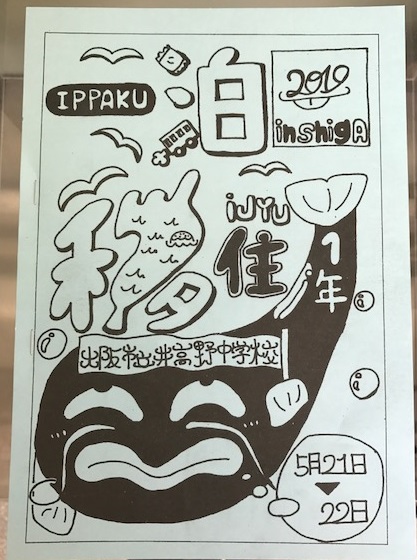 IPPAKU
泊
2019
inshigA
移
iJYU
住
1年
大阪市立井高野中学校
5月21日
22日